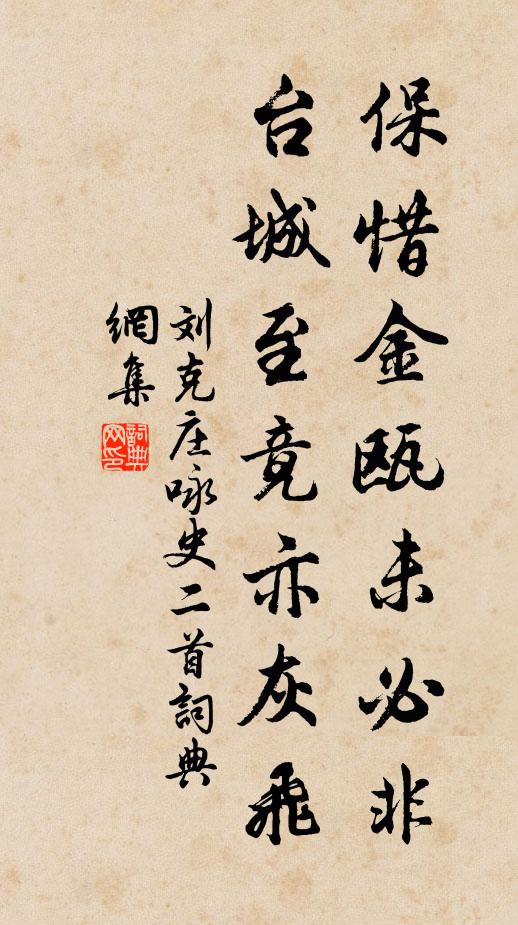 保惜金瓯未必非
台城至竟亦灰飛
刘克庄咏史二首詞典
網集
詞典
网印